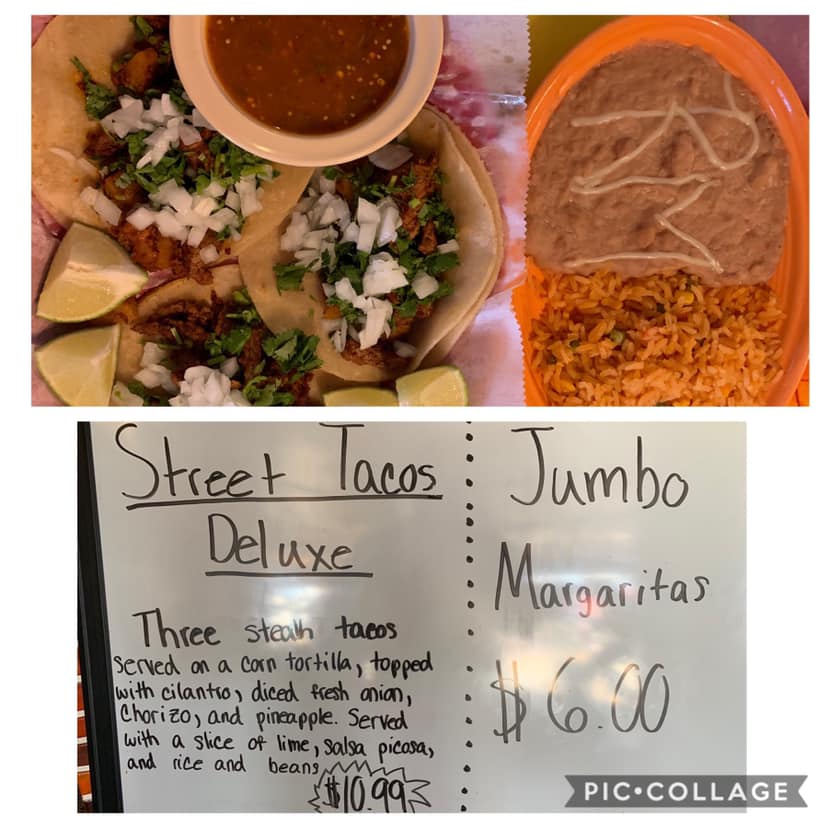 Street Tacos
Deluxe
Three steach tacos
served on a corn tortilla, topped
with cilantro, diced fresh onion,
Chorizo, and pineapple. Served
with a slice of lime, salsa picosa,
and rice and beans
$10.99
Jumbo
Margaritas
$6.00
PIC•COLLAGE